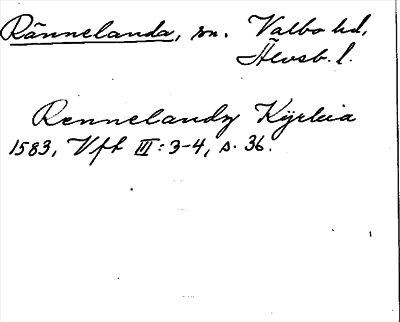 Rännelanda, sn. Valbo hd,
Älvsb. l.
Rennelandz Kyrkia
1583, Vft III: 3-4, s. 36.